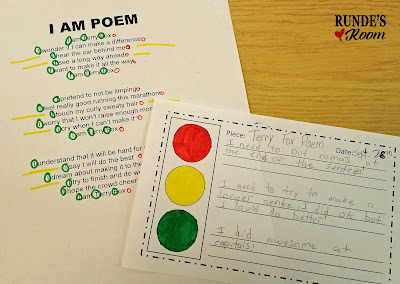 RUNDE'S
Room
I AM POEM
I am Terry Fox
I wonder if I can make a difference
I hear the car behind me
I see a long way ahead
I want to make it all the way
I am Terry Fox
I pretend to not be limping
I feel really good running this marathon
I touch my curly sweaty hair
I worry that I won't raise enough
I cry when I can't make it
I am Terry Fox
I understand that it will be hard for
I say I will do the best
I dream about making it to
I try to finish and do
I hope the crowd cheer
I am Terry Fox
Piece: Terry Fox Poem Date: Sept. 26
I need to put comas at
the end of the sentces!
I need to try to make a
longer sentce. I did ok but
I could do better!
I did awesome at
capitals!